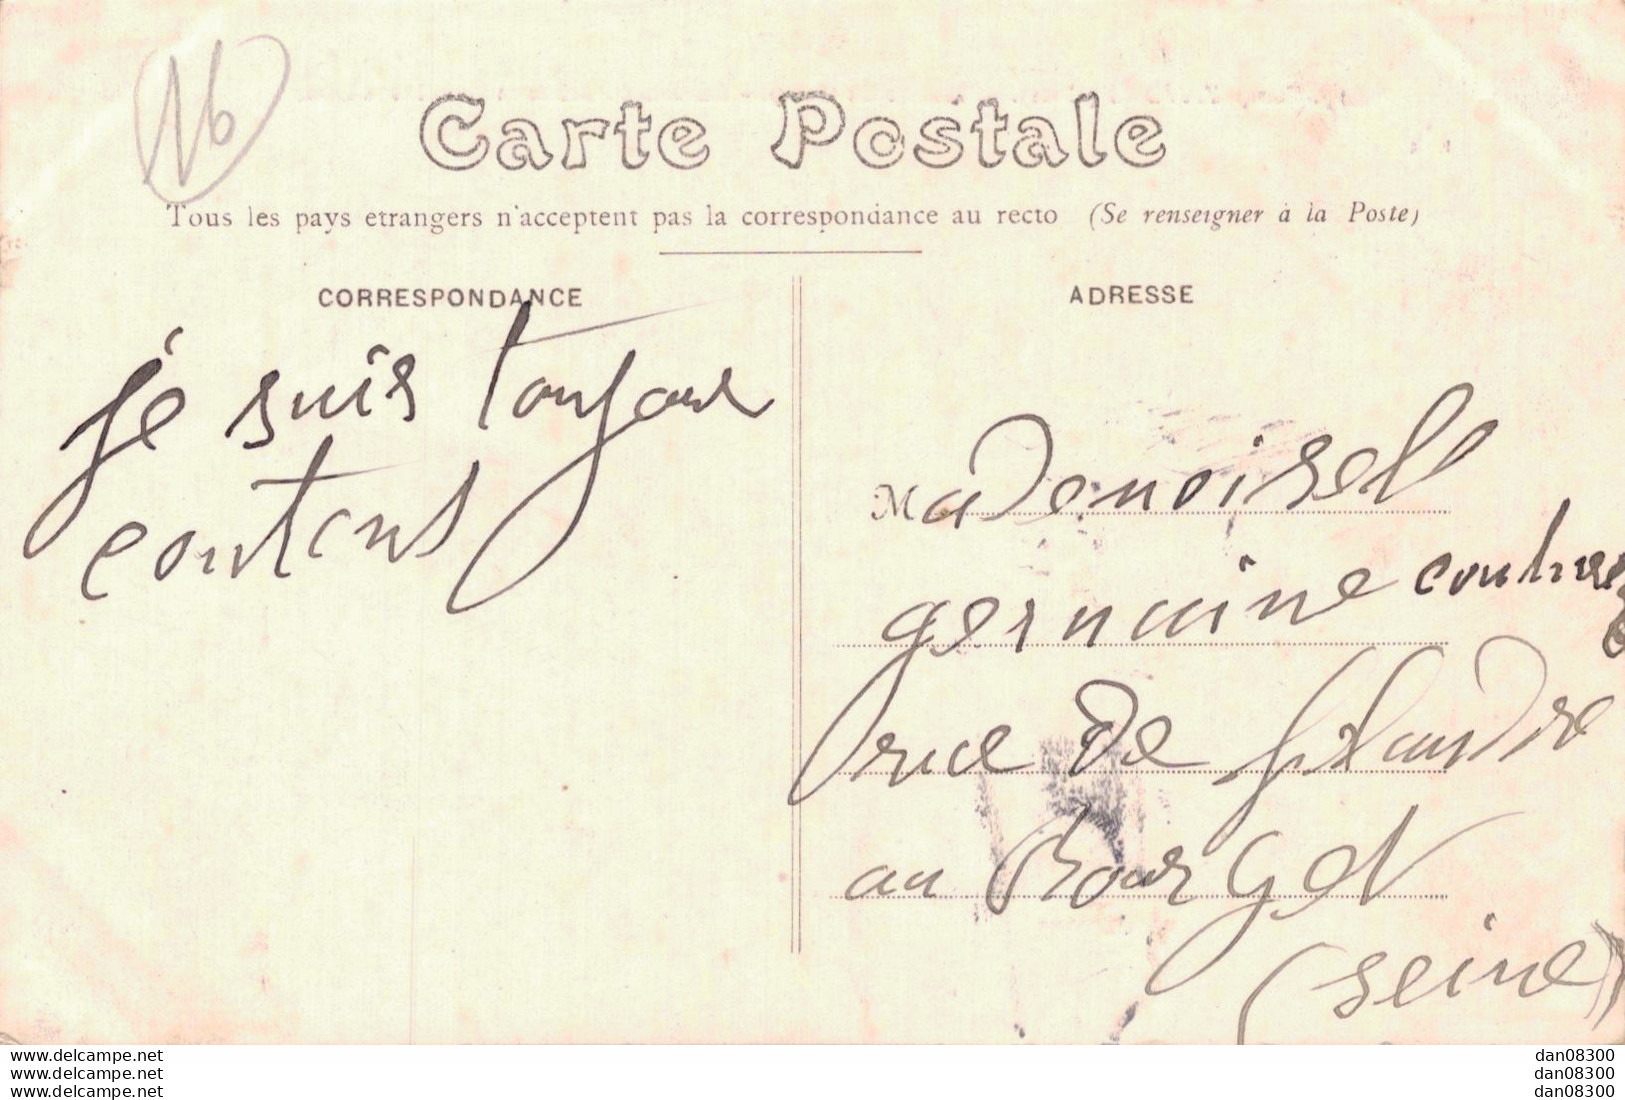 16
Carte Postale
Tous les pays etrangers n'acceptent pas la correspondance au recto (Se renseigner à la Poste)
CORRESPONDANCE
je suis toujour
contens
ADRESSE
Mademoisell
germaine
rue de
au Bourget
(seine)
www.delcampe.net
www.delcampe.net
www.delcampe.net
dan08300
dan08300
dan08300